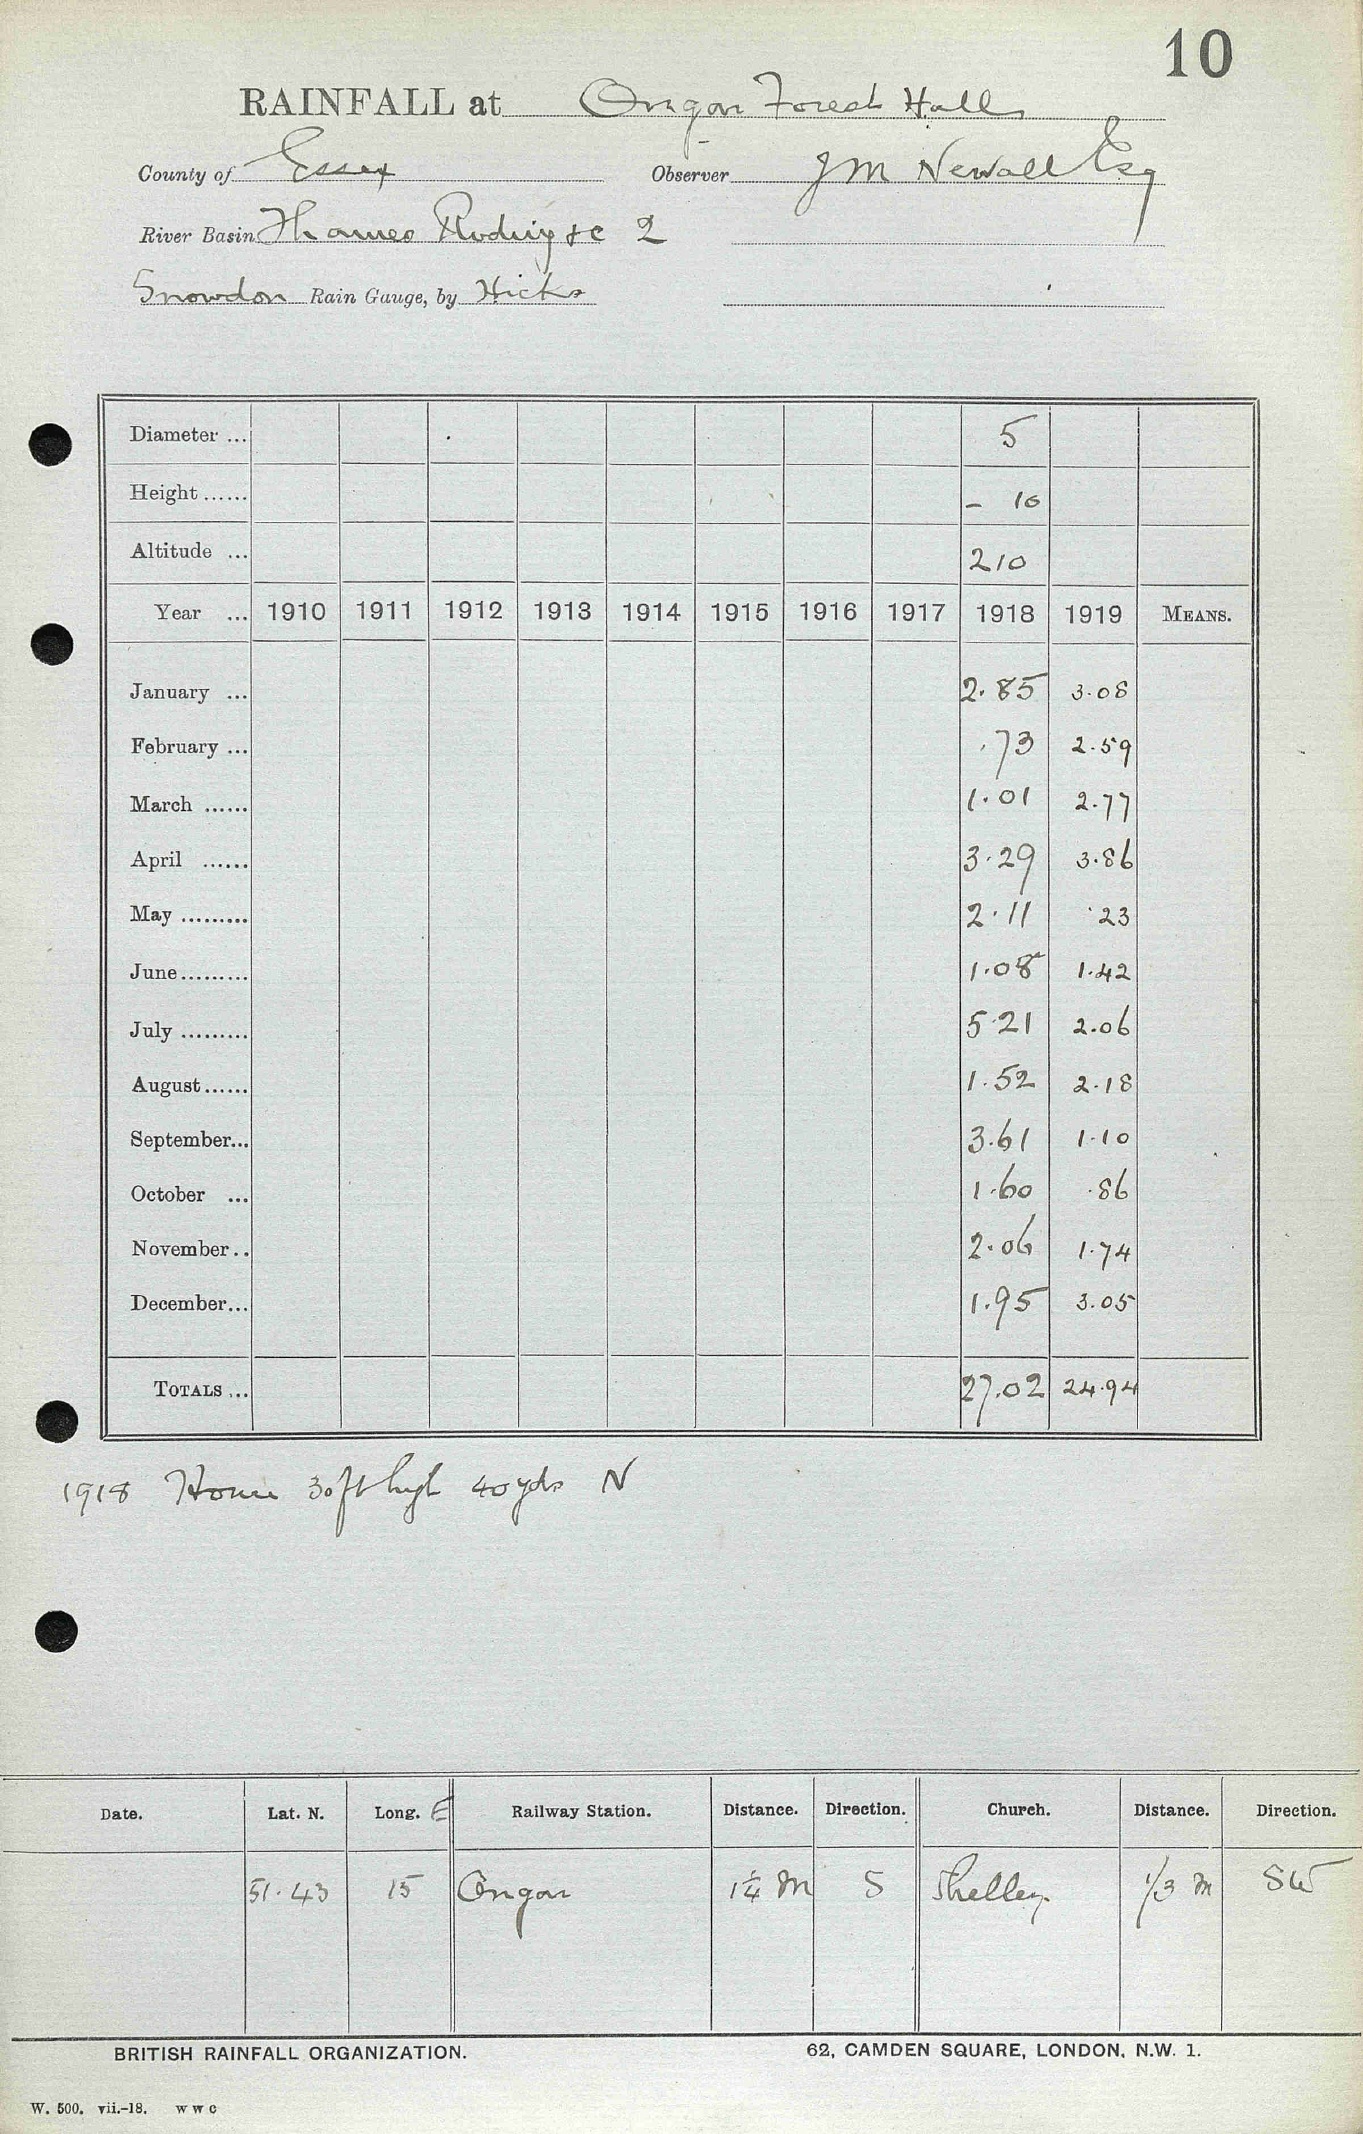 10
RAINFALL at Ongar Forest Hall
County of Essex Observer J M Newall Esq
River Basin Thames Roding &c 2
Snowdon Rain Gauge, by Hicks
Diameter ... 5
Height ...... – 10
Altitude ... 210
Year ... 1910 1911 1912 1913 1914 1915 1916 1917 1918 1919 MEANS.
January ... 2.85 3.08
February ... .73 2.59
March ...... 1.01 2.77
April ...... 3.29 3.86
May ......... 2.11 .23
June ......... 1.08 1.42
July ......... 5.21 2.06
August ...... 1.52 2.18
September... 3.61 1.10
October ... 1.60 .86
November .. 2.06 1.74
December... 1.95 3.05
TOTALS ... 27.02 24.94
1918 House 30ft high 40 yds N
Date. Lat. N. Long. E Railway Station. Distance. Direction. Church. Distance. Direction.
51.43 15 Ongar 1¼ M S Shelley 1/3 M SW
BRITISH RAINFALL ORGANIZATION. 62, CAMDEN SQUARE, LONDON, N.W. 1.
W. 500. vii.-18. w w c